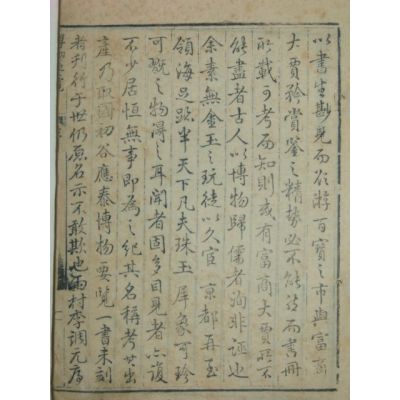 以書生尠見而欲游百寶之市與富商
大賈矜賞鑒之精勢必不能然而書冊
所載可考而知則或有富商大賈所不
能盡者古人以博物歸儒者洵非誣也
余素無金玉之玩徒以久官京都再至
領海足跡半天下凡夫珠玉犀象可珍
可翫之物得之耳聞者固多目見者亦復
不少居恒無事即為之紀其名稱考其出
產乃取國初谷應泰博物要覽一書未刻
者刊行于世仍原名示不敢欺也雨村李調元序